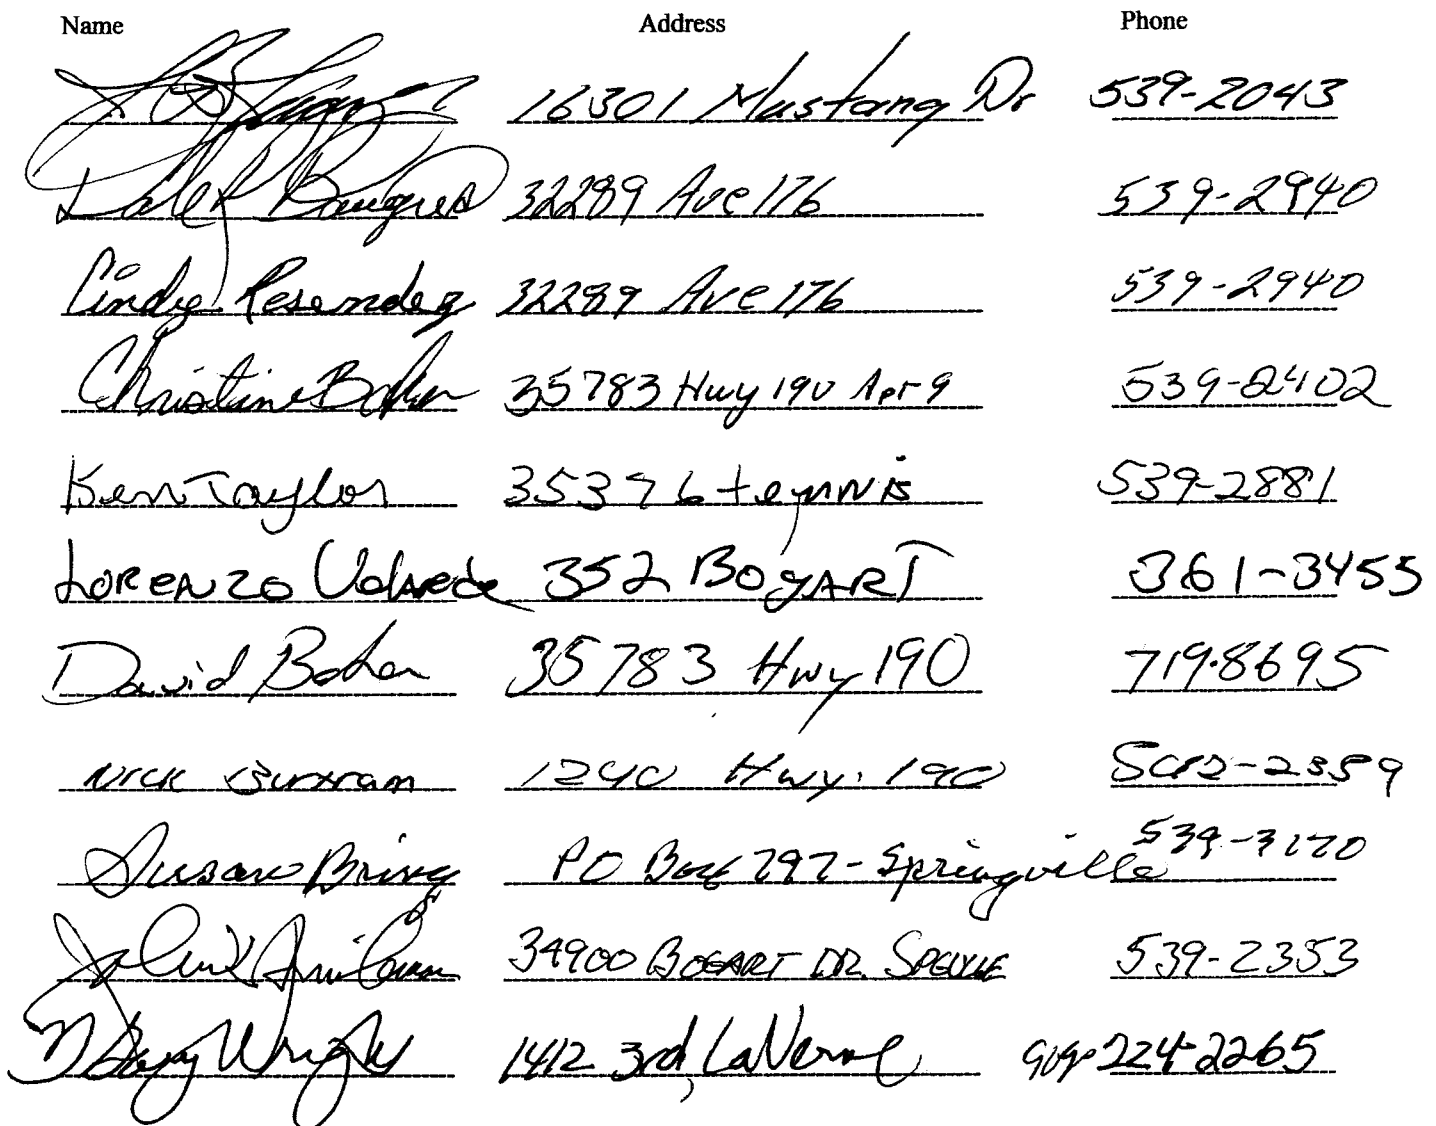 Name Address Phone
16301 Mustang Dr 539-2043
Dale 32289 Ave 176 539-2940
Cindy Resendez 32289 Ave 176 539-2940
Christine Baker 35783 Hwy 190 Apt 9 539-2402
Ken Taylor 35376 539-2881
LORENZO 352 BOgART 361-3455
David Baker 35783 Hwy 190 719-8695
Nick 1240 Hwy. 190
Susan PO Box 797 - Springville 539-3170
John 34900 BOGART DR. 539-2353
Wright 1412 3rd, LaVerne 224-2265